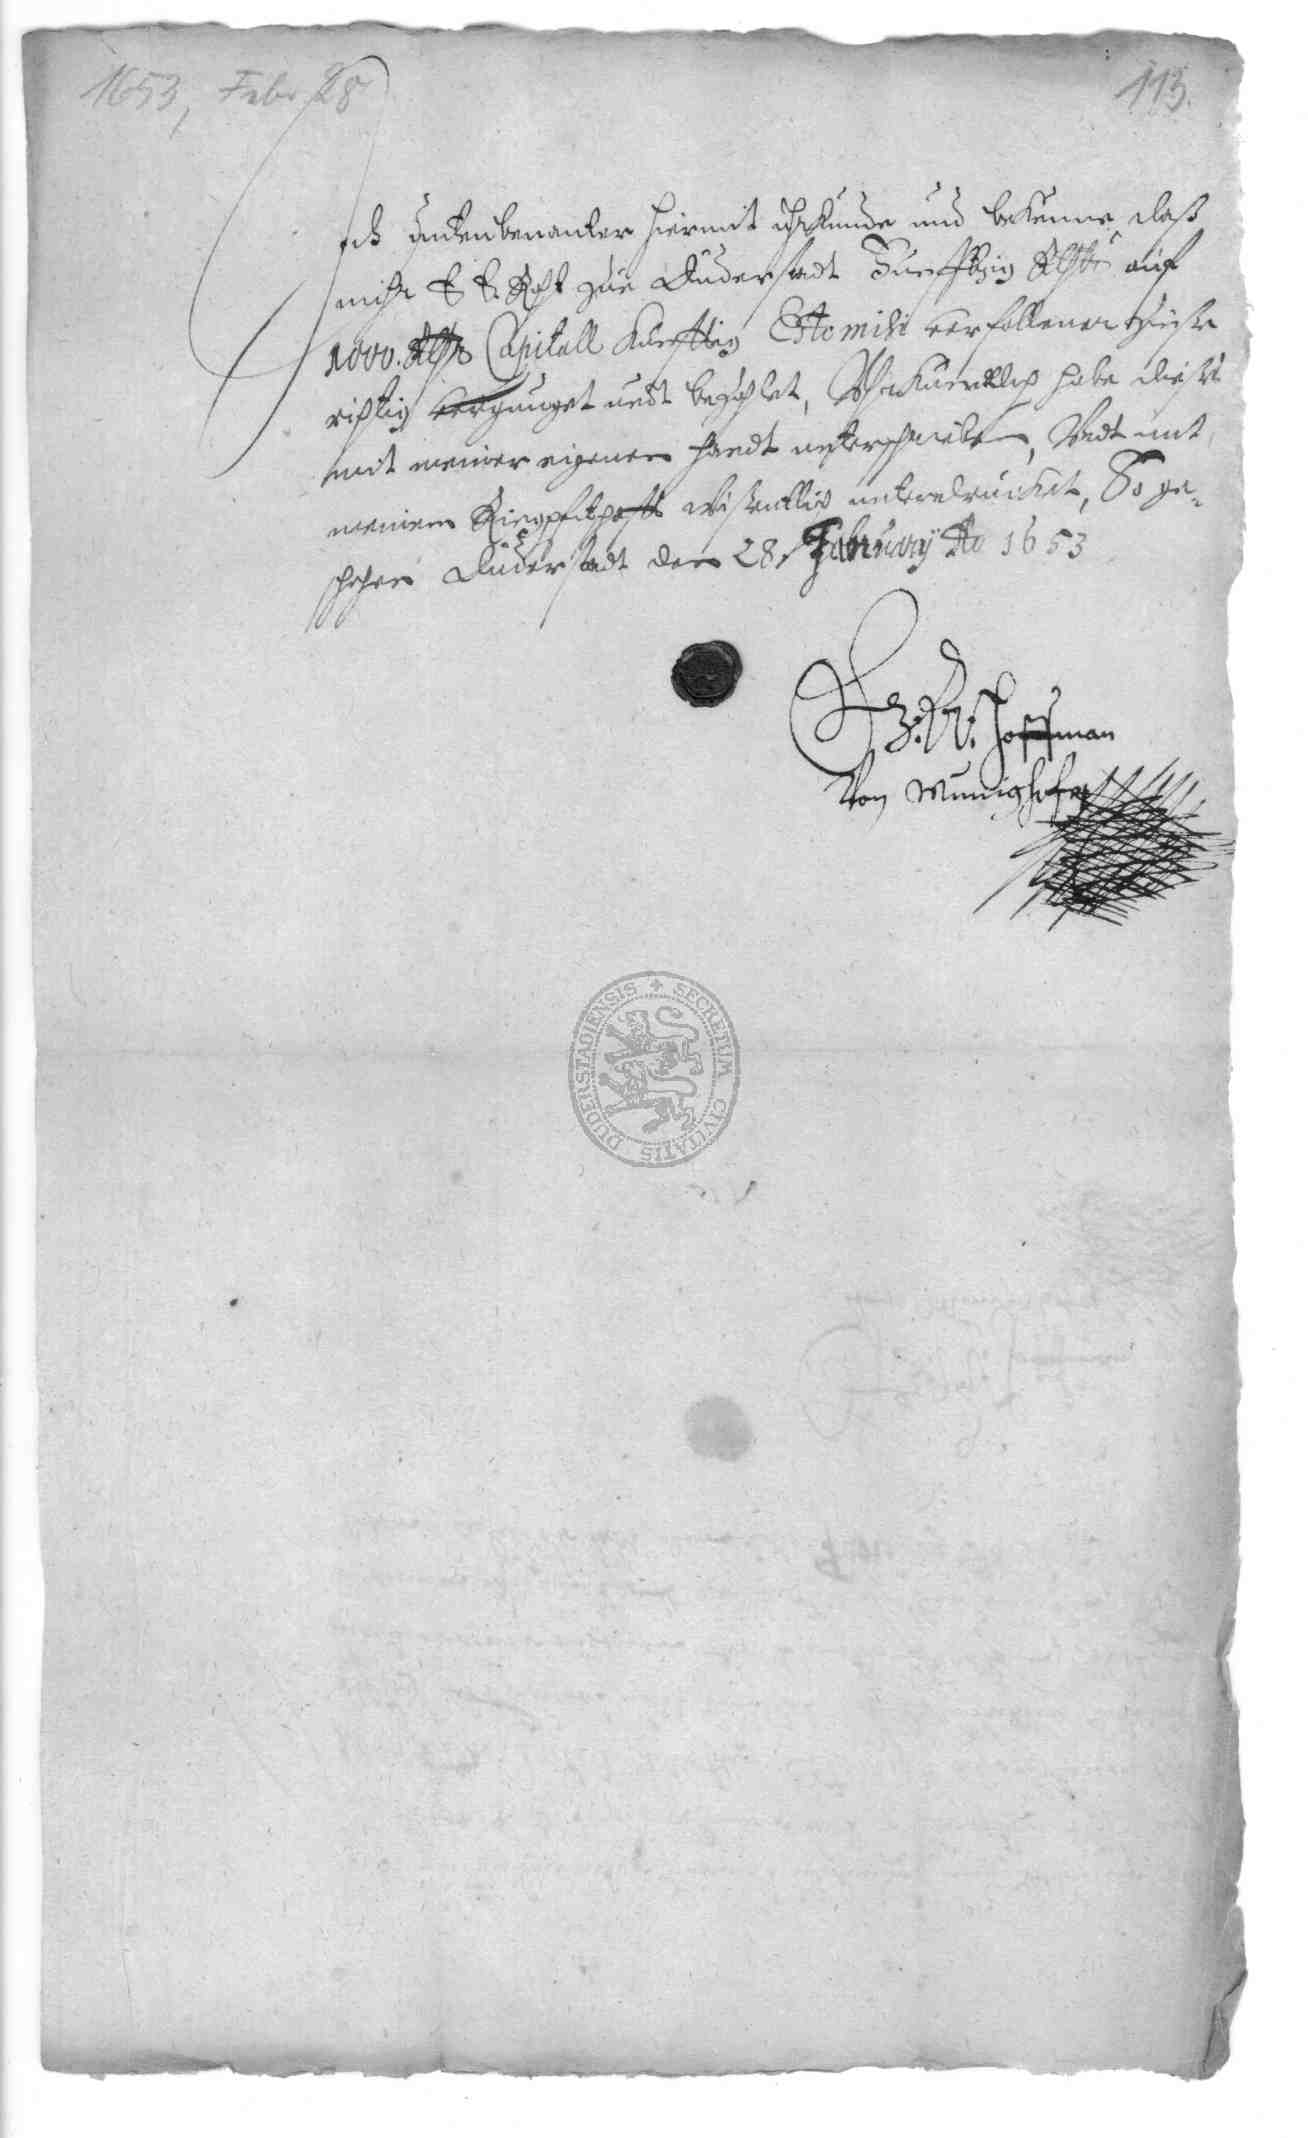 1653, Febr 28
113.
Ich Untenbenanter hiermit uhrkunde und bekenne, daß
mihr E E. Raht zue Duderstadt Funfftzig Rthlr auff
1000. Rthlr Capitall kunfftig Estomihi verfallener Zinse
richtig vergnuget undt bezahlet, Uhrkundtlich habe dieses
mit meiner eigenen handt unterschrieben, Undt mit
meinem Ringpittschafft wissentlich unterdrucket, So ge-
schehen Duderstadt den 28. February Ao 1653
Hoffman
Von
DUDERSTADIENSIS + SECRETUM CIVITATIS